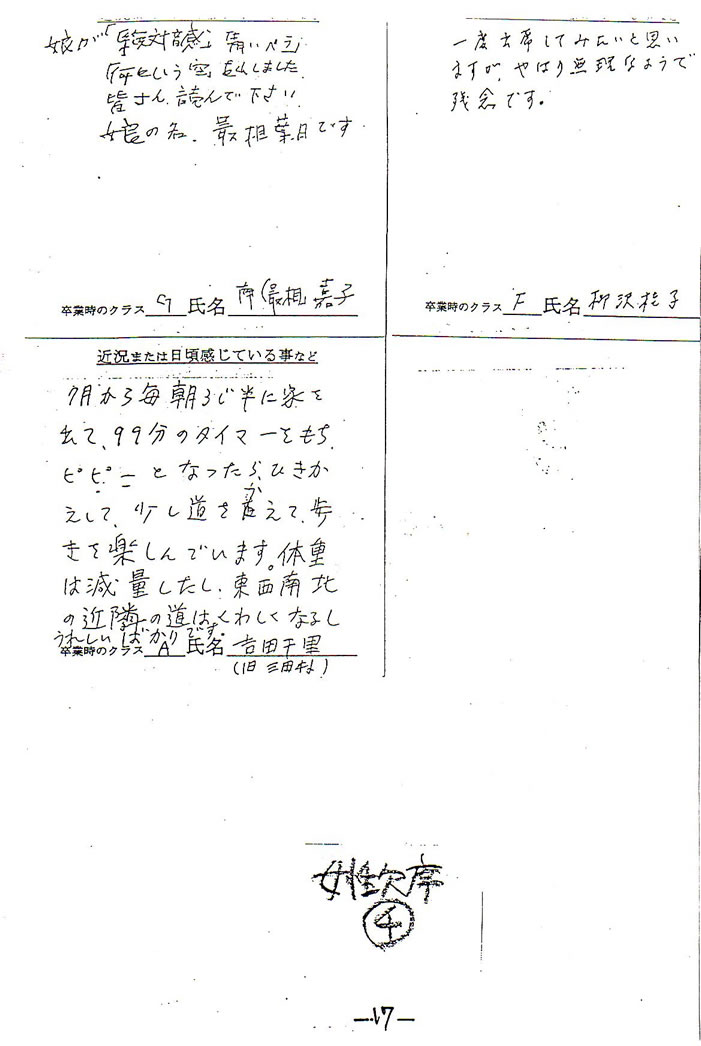 娘が「絶対音感」「青いバラ」
「何という空」を出しました。
皆さん、読んで下さい。
娘の名、最相葉月です
卒業時のクラス G 氏名 南(最相)嘉子
一度出席してみたいと思い
ますが、やはり無理なようで
残念です。
卒業時のクラス F 氏名 柳沢桂子
近況または日頃感じている事など
7月から毎朝3じ半に家を
出て、99分のタイマーをもち、
ピピーとなったら、ひきか
えして、少し道を変えて、歩
きを楽しんでいます。体重
は減量したし、東西南北
の近隣の道はくわしくなるし
うれしいばかりです。
卒業時のクラス A 氏名 吉田千里
(旧 三田村)
女性欠席
④
—17—